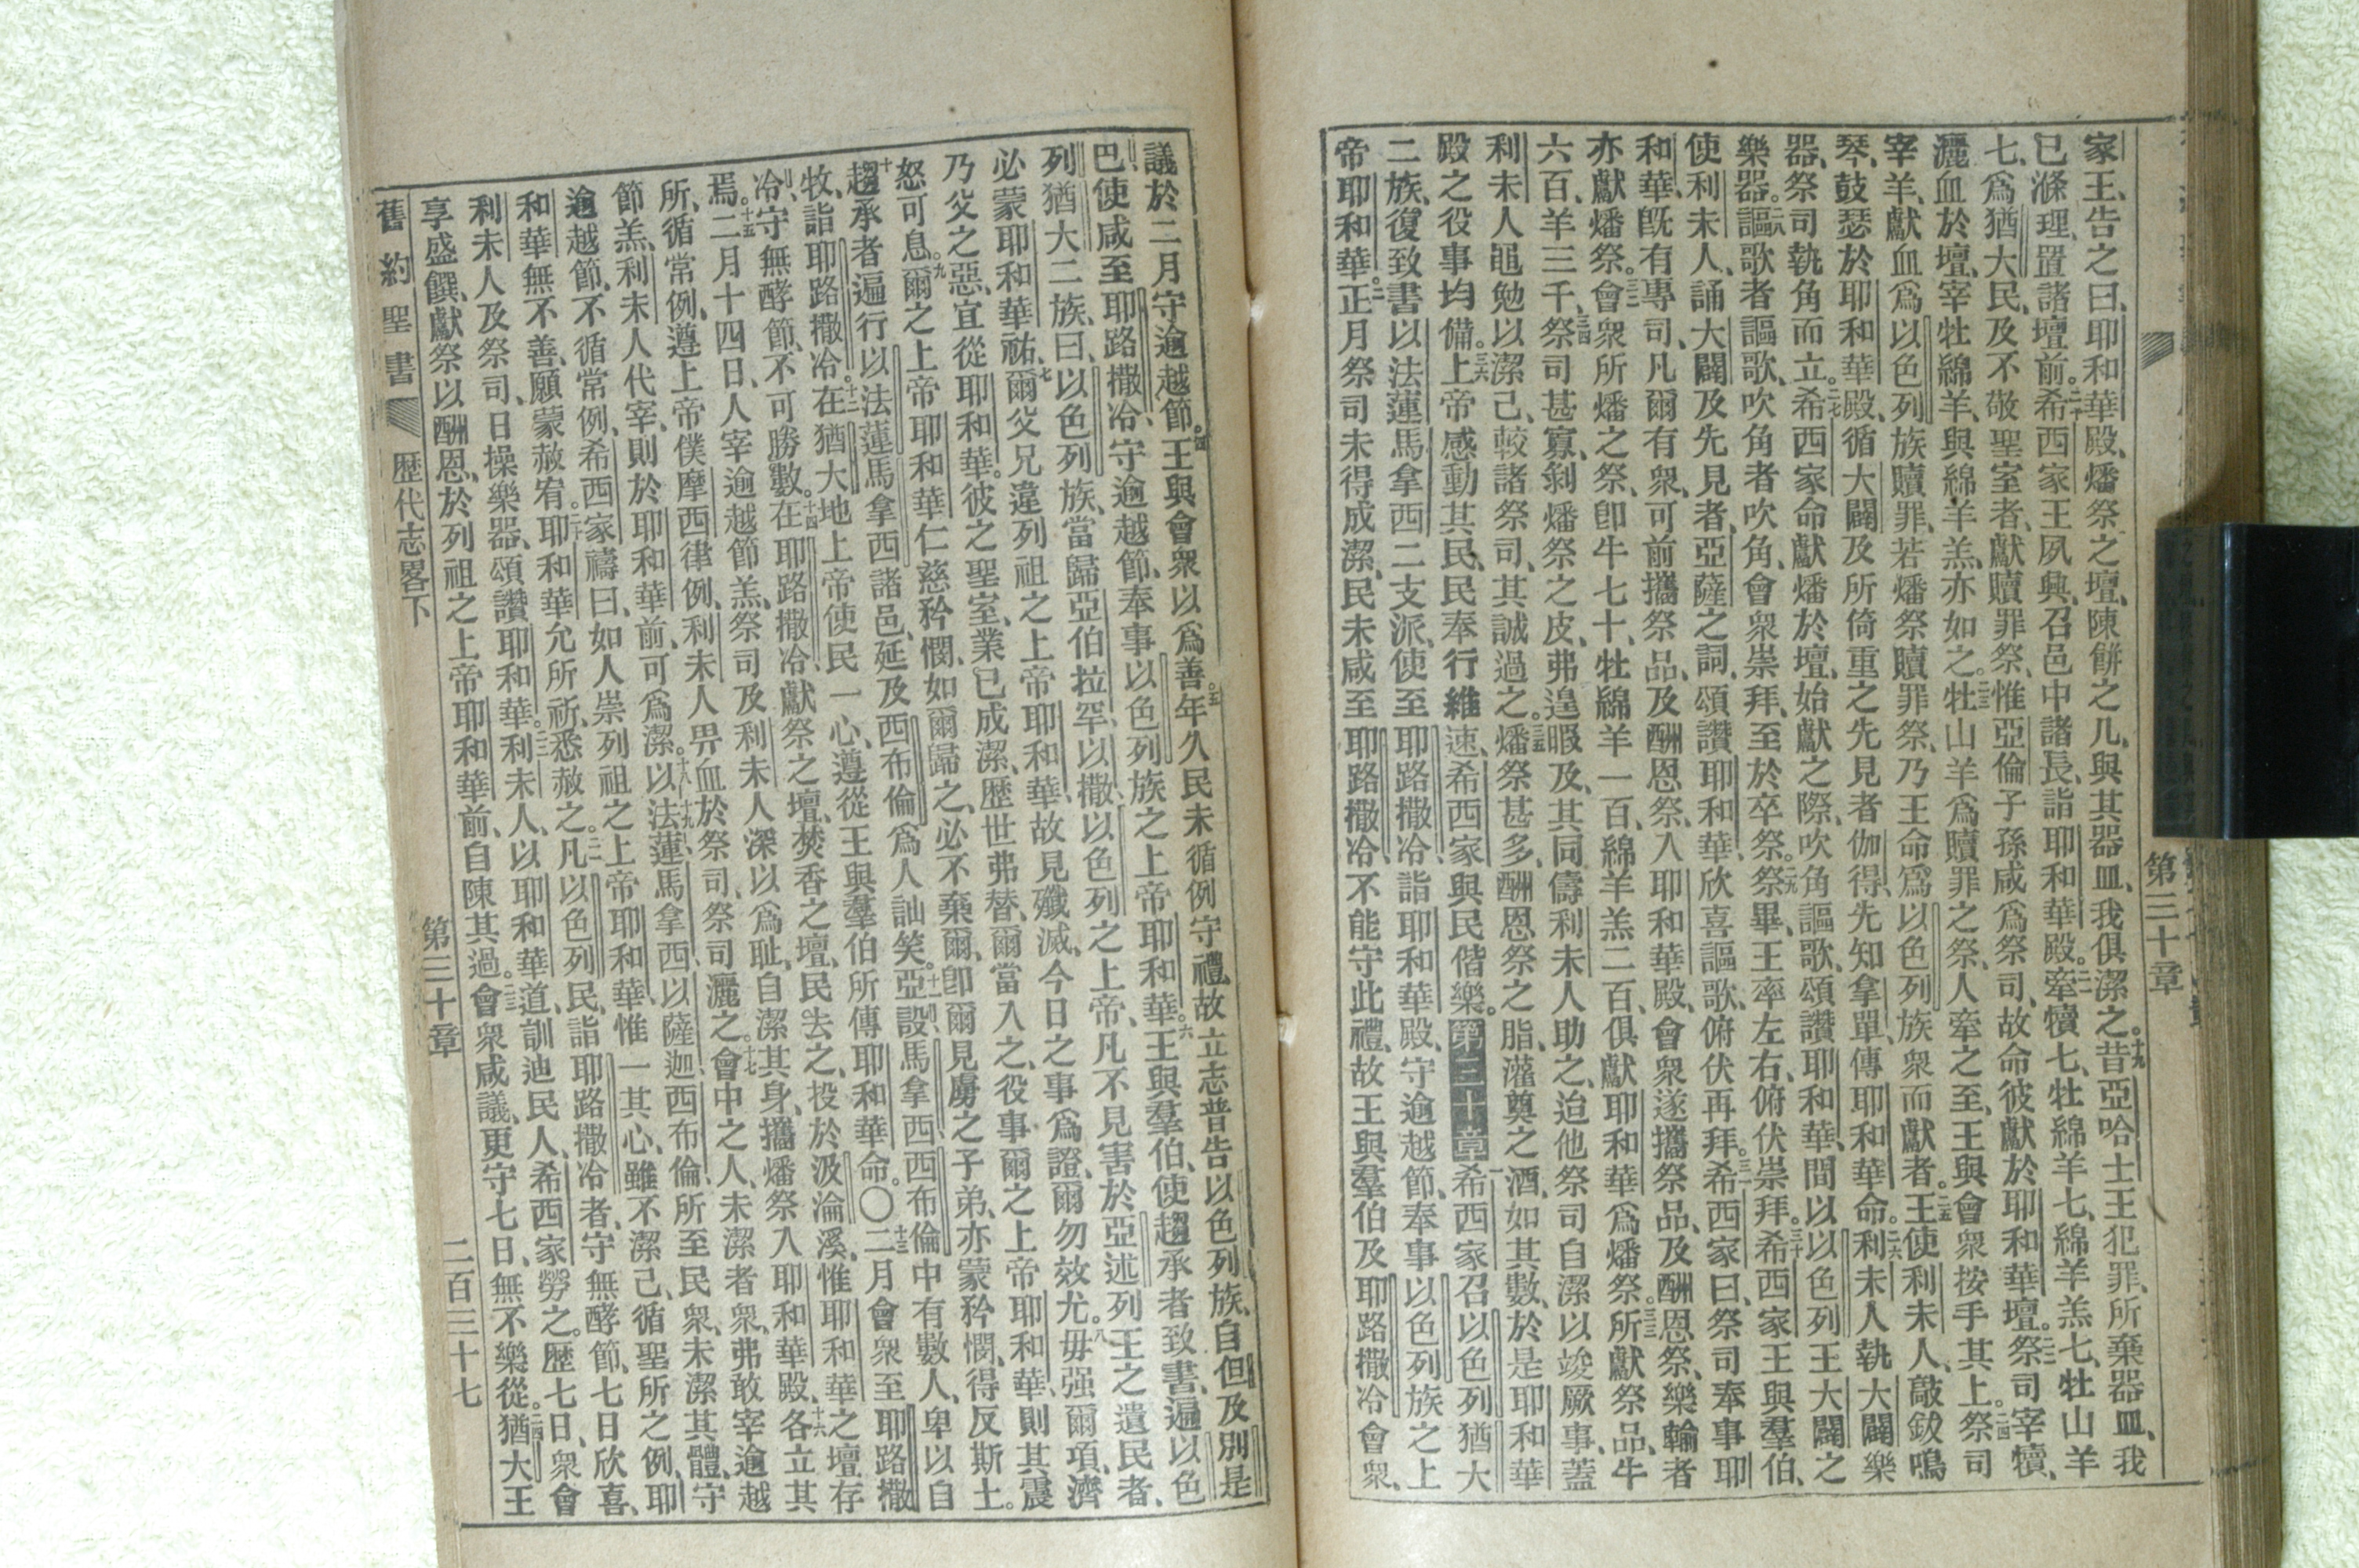 家王、告之曰、耶和華殿、燔祭之壇、陳餅之几、與其器皿、我俱潔之。十九昔亞哈士王犯罪、所棄器皿、我
已滌理、置諸壇前。二十希西家王夙興、召邑中諸長、詣耶和華殿。二一牽犢七、牡綿羊七、綿羊羔七、牡山羊
七、爲猶大民、及不敬聖室者、獻贖罪祭、惟亞倫子孫咸爲祭司、故命彼獻於耶和華壇。二二祭司宰犢、
灑血於壇、宰牡綿羊、與綿羊羔、亦如之。二三牡山羊爲贖罪之祭、人牽之至、王與會衆按手其上。二四祭司
宰羊、獻血爲以色列族贖罪、若燔祭贖罪祭、乃王命爲以色列族衆而獻者。二五王使利未人、敲鈸鳴
琴、鼓瑟於耶和華殿、循大闢及所倚重之先見者伽得、先知拿單、傳耶和華命。二六利未人執大闢樂
器、祭司執角而立。二七希西家命獻燔於壇、始獻之際、吹角謳歌、頌讚耶和華、間以以色列王大闢之
樂器。二八謳歌者謳歌、吹角者吹角、會衆崇拜、至於卒祭。二九祭畢、王率左右、俯伏崇拜。三十希西家王與羣伯、
使利未人、誦大闢及先見者、亞薩之詞、頌讚耶和華、欣喜謳歌、俯伏再拜。三一希西家曰、祭司奉事耶
和華、旣有專司、凡爾有衆、可前攜祭品、及酬恩祭、入耶和華殿、會衆遂攜祭品、及酬恩祭、樂輸者
亦獻燔祭。三二會衆所燔之祭、卽牛七十、牡綿羊一百、綿羊羔二百、俱獻耶和華爲燔祭。三三所獻祭品、牛
六百、羊三千、三四祭司甚寡、剝燔祭之皮、弗遑暇及、其同儔利未人助之、迨他祭司自潔以竣厥事、蓋
利未人黽勉以潔己、較諸祭司、其誠過之。三五燔祭甚多、酬恩祭之脂、灌奠之酒、如其數、於是耶和華
殿之役事均備。三六上帝感動其民、民奉行維速、希西家與民偕樂。第三十章一希西家召以色列猶大
二族、復致書以法蓮馬拿西二支派、使至耶路撒冷、詣耶和華殿、守逾越節、奉事以色列族之上
帝耶和華。二正月祭司未得成潔、民未咸至耶路撒冷、不能守此禮、故王與羣伯及耶路撒冷會衆、
第三十章
議於二月守逾越節。四王與會衆以爲善。五年久民未循例守禮、故立志普告以色列族、自但及別是
巴、使咸至耶路撒冷、守逾越節、奉事以色列族之上帝耶和華。六王與羣伯、使趨承者致書、遍以色
列猶大二族、曰、以色列族、當歸亞伯拉罕、以撒、以色列之上帝、凡不見害於亞述列王之遺民者、
必蒙耶和華祐、七爾父兄違列祖之上帝耶和華、故見殲滅、今日之事爲證、爾勿效尤。八毋强爾項、濟
乃父之惡、宜從耶和華。彼之聖室、業已成潔、歷世弗替、爾當入之、役事爾之上帝耶和華、則其震
怒可息。九爾之上帝耶和華仁慈矜憫、如爾歸之、必不棄爾、卽爾見虜之子弟、亦蒙矜憫、得反斯土。
十趨承者遍行以法蓮馬拿西諸邑、延及西布倫、爲人訕笑。十一亞設馬拿西西布倫中有數人、卑以自
牧、詣耶路撒冷。十二在猶大地上帝使民一心、遵從王與羣伯所傳耶和華命。〇十三二月會衆至耶路撒
冷、守無酵節、不可勝數。十四在耶路撒冷獻祭之壇、焚香之壇、民去之、投於汲淪溪、惟耶和華之壇存
焉。十五二月十四日、人宰逾越節羔、祭司及利未人深以爲耻、自潔其身、攜燔祭入耶和華殿、十六各立其
所、循常例、遵上帝僕摩西律例、利未人畀血於祭司、祭司灑之。十七會中之人、未潔者衆、弗敢宰逾越
節羔、利未人代宰、則於耶和華前、可爲潔。十八十九以法蓮、馬拿西、以薩迦、西布倫所至民衆、未潔其體、守
逾越節、不循常例、希西家禱曰、如人崇列祖之上帝耶和華、惟一其心、雖不潔己、循聖所之例、耶
和華無不善、願蒙赦宥。二十耶和華允所祈、悉赦之。二一凡以色列民、詣耶路撒冷者、守無酵節、七日欣喜、
利未人及祭司、日操樂器、頌讚耶和華。二二利未人、以耶和華道、訓迪民人、希西家勞之。歷七日、衆會
享盛饌、獻祭以酬恩、於列祖之上帝耶和華前、自陳其過。二三會衆咸議、更守七日、無不樂從。二四猶大王
舊約聖書 歷代志畧下 第三十章 二百三十七